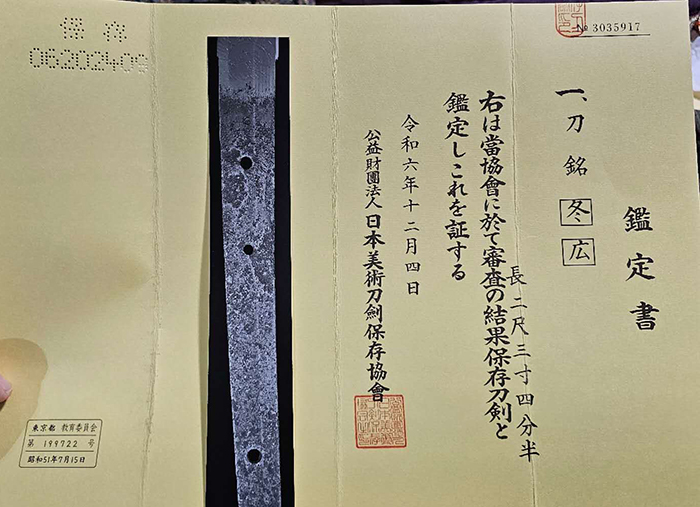 鑑定書
№ 3035917
一、刀 銘 冬広
長二尺三寸四分半
右は當協會に於て審査の結果保存刀剣と
鑑定しこれを証する
令和六年十二月四日
公益財團法人 日本美術刀剣保存協會
保存
06202409
東京都 教育委員会
第 199722 号
昭和51年7月15日